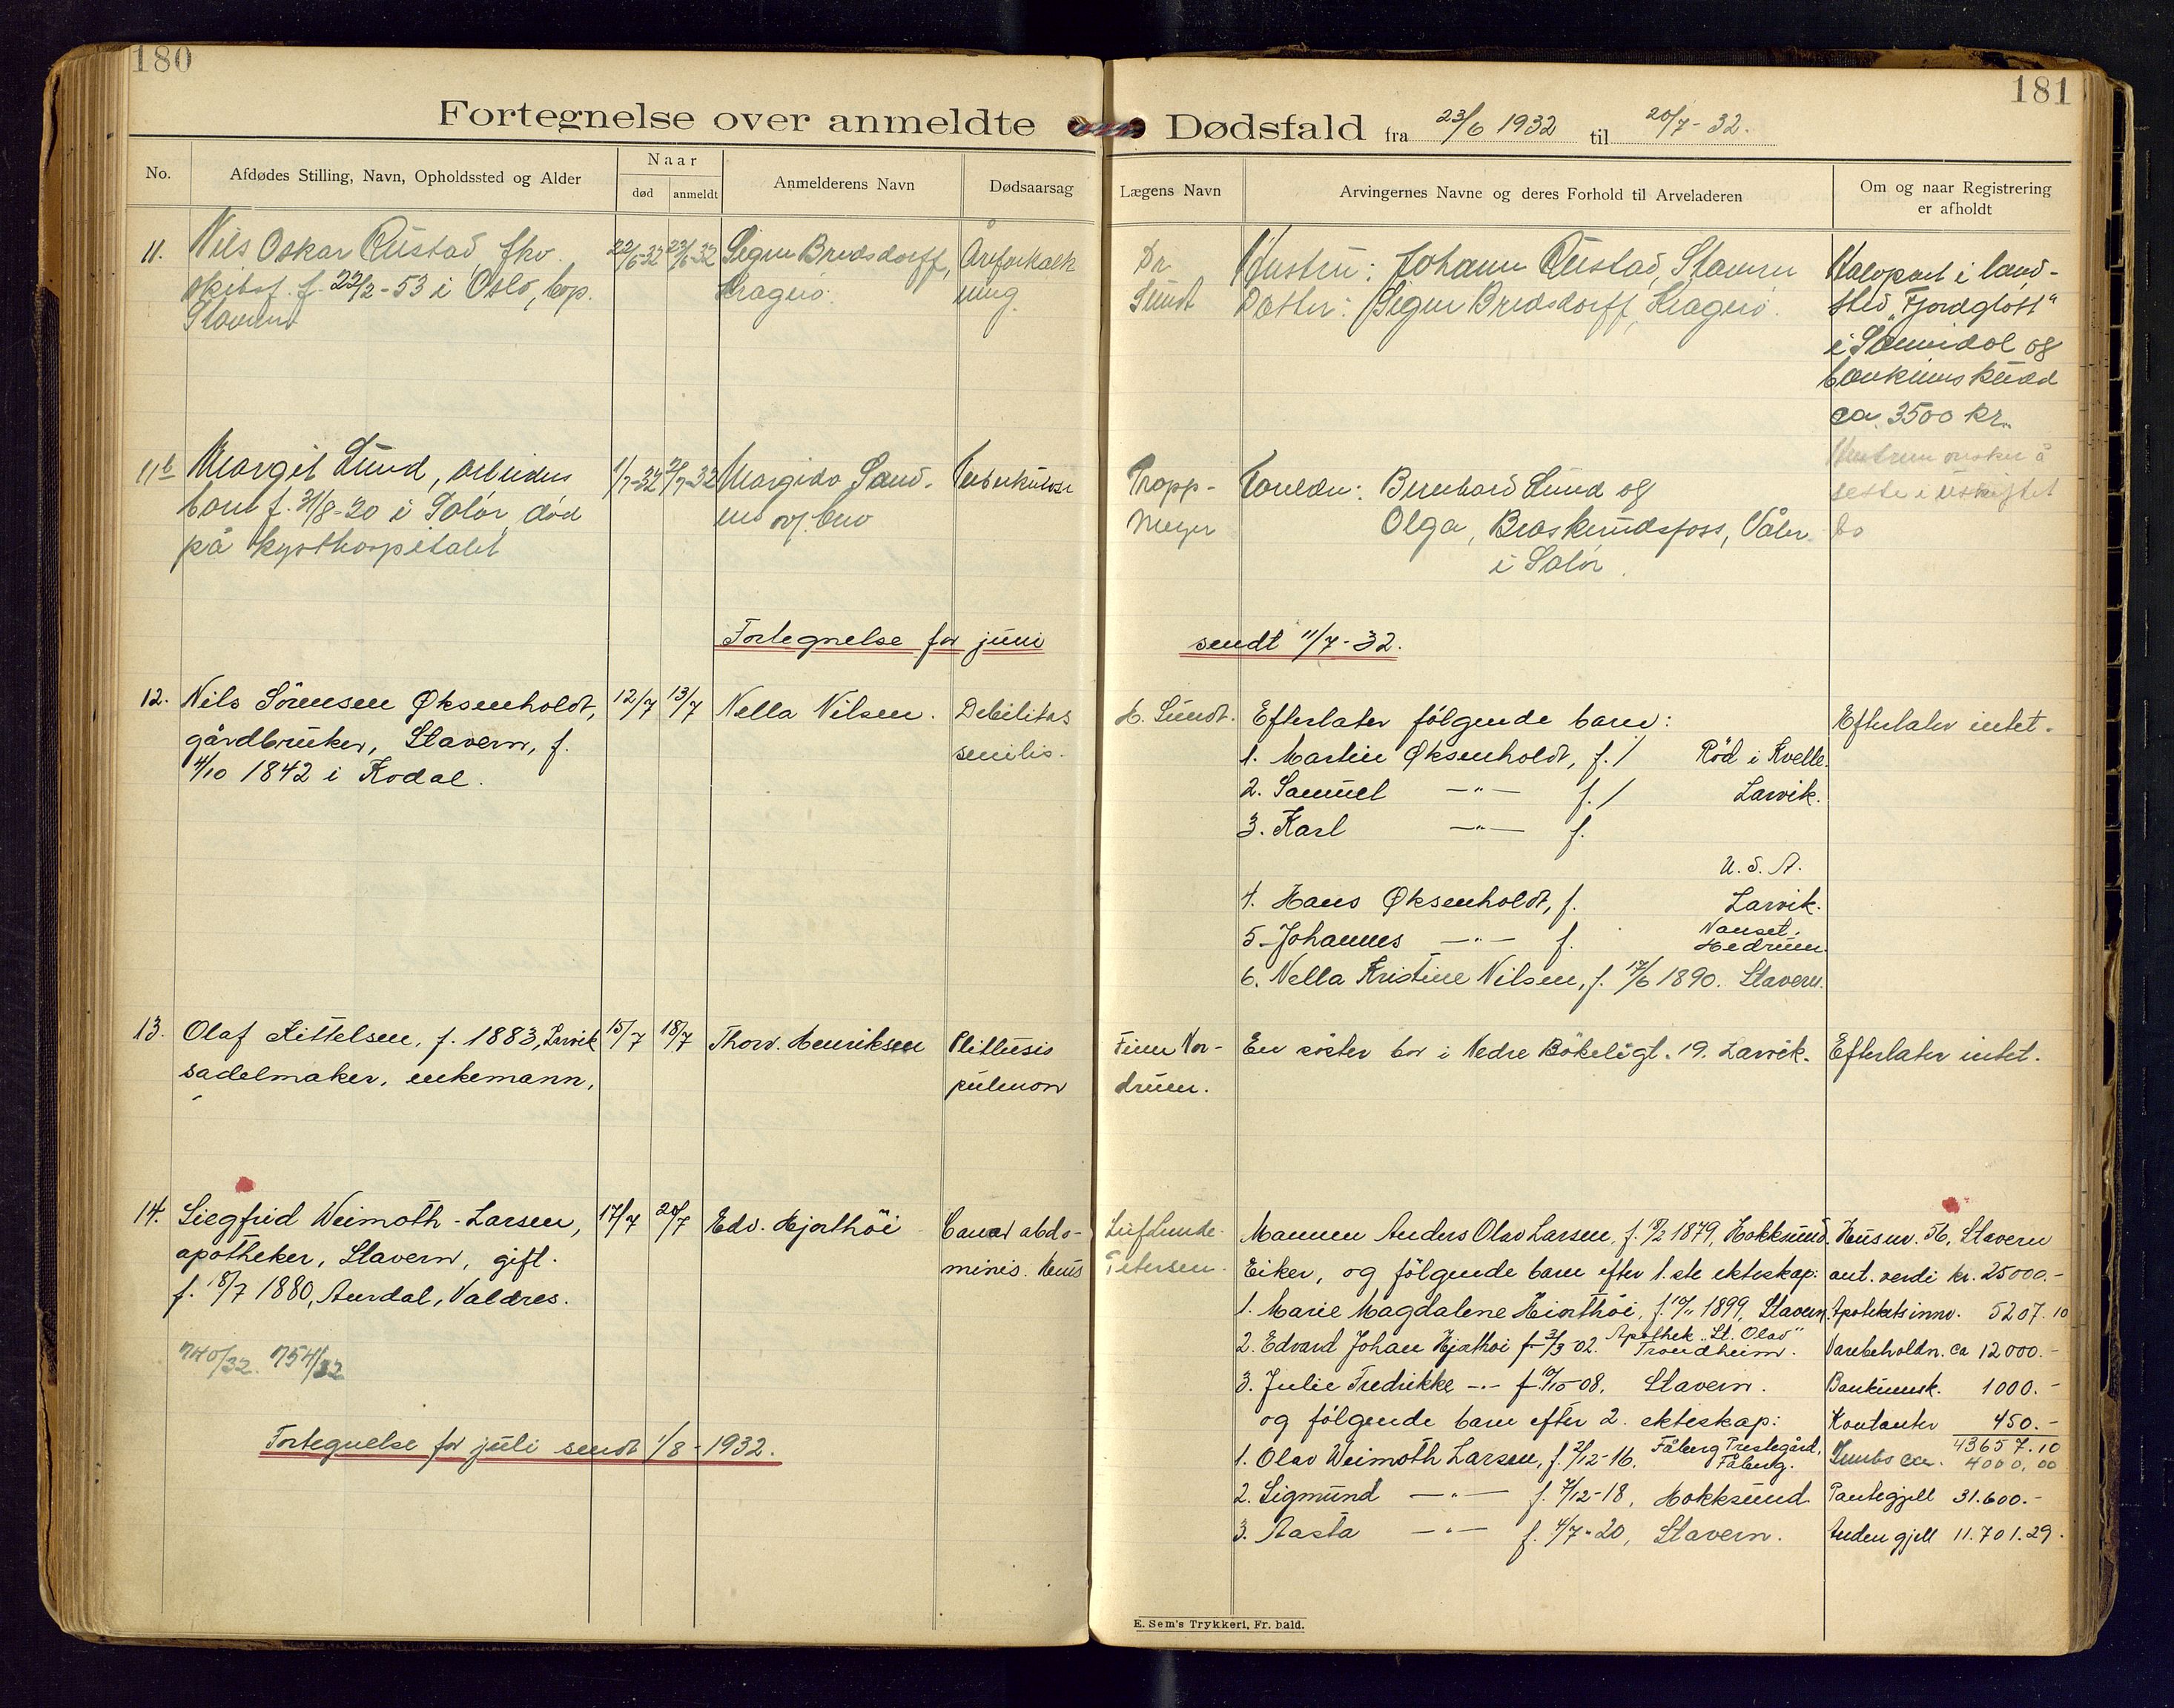 180
181
Fortegnelse over anmeldte Dødsfald fra 23/6 1932 til 20/7-32.
No.
Afdødes Stilling, Navn, Opholdssted og Alder
Naar
død
anmeldt
Anmelderens Navn
Dødsaarsag
Lægens Navn
Arvingernes Navne og deres Forhold til Arveladeren
Om og naar Registrering
er afholdt
11. Nils Oskar Austad, fhv.
skibsf. f. 22/2-53 i Oslo, bop.
Stavern
22/6-32 23/6-32
Sigrun Bredsdorff,
Kragerö.
Åreforkalk
ning
Dr.
Sundt
Hustru: Johanne Austad, Stavern
Datter: Sigrun Bredsdorff, Kragerö.
Halvpart i land-
sted "Fjordglött"
i Sannidal og
bankinnskudd
ca. 3500 kr.
Hustruen ønsker å
sitte i uskiftet
bo
11b Margit Lund, arbeiders
barn f. 31/8-20 i Solör, död
på kysthospitalet
1/7-32 2/7-32
Margido Sand-
en
Tuberkulose
Tropp-
Meyer
Foreldre: Bernhard Lund og
Olga, Braskerudsfoss, Våler
i Solör.
Fortegnelse for juni sendt 11/7-32.
12. Nils Sörensen Øksenholdt,
gårdbruker, Stavern, f.
4/10 1842 i Kodal.
12/7 13/7
Nella Nilsen.
Debilitas
senilis.
H. Sundt.
Efterlater fölgende barn:
1. Martin Øksenholdt, f. / Röd i Kvelle.
2. Samuel —"— f. / Larvik.
3. Karl —"— f.
U.S.A.
4. Hans Øksenholdt, f. Larvik.
5. Johannes —"— f. Nanset,
Hedrum.
6. Nella Kristine Nilsen, f. 17/6 1890. Stavern.
Efterlater intet.
13. Olaf Kittelsen, f. 1883, Larvik
sadelmaker, enkemann,
15/7 18/7
Thorv. Henriksen
Phthisis
pulmon
Finn Nor-
drum.
En söster bor i Nedre Bökeligt. 19. Larvik.
Efterlater intet.
14. Siegfrid Weimoth-Larsen,
apotheker, Stavern, gift.
f. 18/7 1880, Aurdal, Valdres.
740/32. 754/32
17/7 20/7
Edv. Hjorthöi
Cancer abdo-
minis.
Leif Lunde-
Petersen.
Mannen Anders Olav Larsen, f. 1879, Hokksund,
Eiker, og fölgende barn efter 1.ste ekteskap:
1. Marie Magdalene Hiorthöi, f. 1899, Stavern.
2. Edvard Johan Hjorthöi f. 3/3 02. Apothek "St. Olav"
Trondheim.
3. Julie Fredrikke —"— f. 10/10-08. Stavern.
og fölgende barn efter 2. ekteskap:
1. Olav Weimoth Larsen, f. 2/12-16. Fåberg Prestegård,
Fåberg.
2. Sigmund —"— f. 7/12-18, Hokksund
3. Aasta —"— f. 4/7-20, Stavern.
Husnr. 56, Stavern
ant. verdi kr. 25000.-
Apotekets innv. 5207.10
Varebeholdn. ca 12000.-
Bankinnsk. 1000.-
Kontanter 450.-
43657.10
Innbo ca. 4000,00
Pantegjell 31.600.-
Anden gjell 11.701.29.
Fortegnelse for juli sendt 1/8-1932.
E. Sem's Trykkeri, Fr.hald.